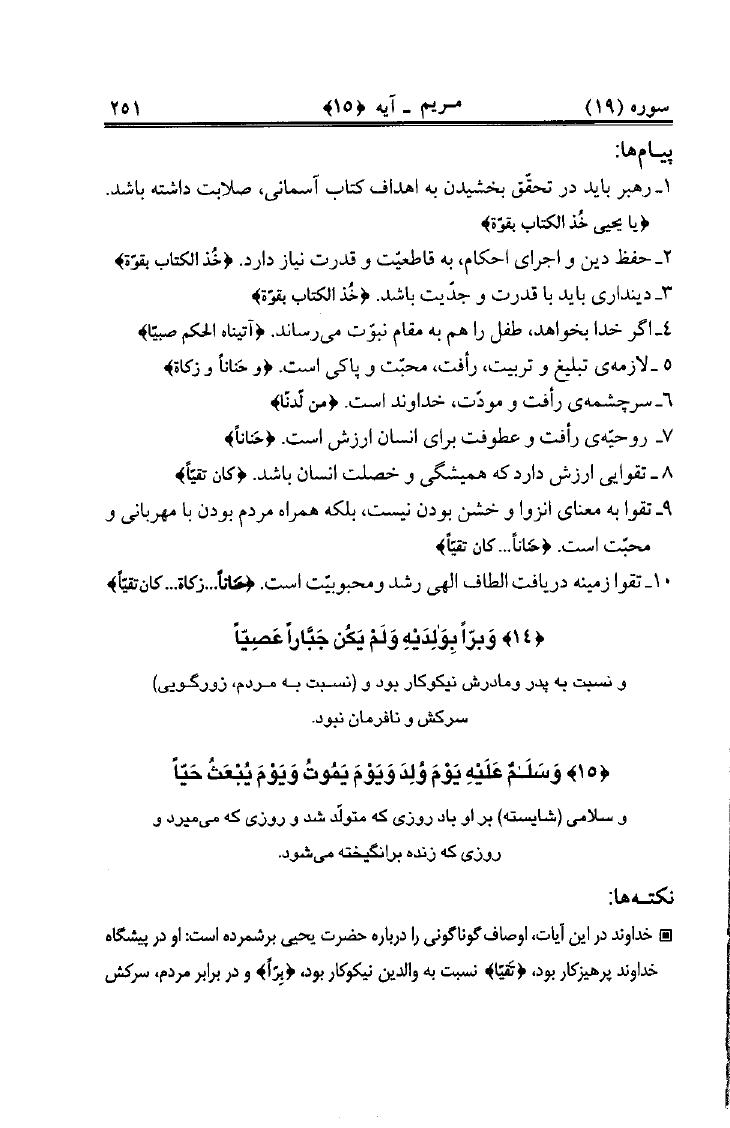 سوره (۱۹) مریم ـ آیه ﴿۱۵﴾ ۲۵۱
پیام‌ها:
۱ـ رهبر باید در تحقّق بخشیدن به اهداف کتاب آسمانی، صلابت داشته باشد.
﴿یا یحیی خُذ الکتاب بقوّة﴾
۲ـ حفظ دین و اجرای احکام، به قاطعیّت و قدرت نیاز دارد. ﴿خُذ الکتاب بقوّة﴾
۳ـ دینداری باید با قدرت و جدّیت باشد. ﴿خُذ الکتاب بقوّة﴾
٤ـ اگر خدا بخواهد، طفل را هم به مقام نبوّت می‌رساند. ﴿آتیناه الحکم صبیّا﴾
۵ ـ لازمه‌ی تبلیغ و تربیت، رأفت، محبّت و پاکی است. ﴿و حَناناً و زکاة﴾
٦ـ سرچشمه‌ی رأفت و مودّت، خداوند است. ﴿من لّدنّا﴾
۷ـ روحیّه‌ی رأفت و عطوفت برای انسان ارزش است. ﴿حَناناً﴾
۸ ـ تقوایی ارزش دارد که همیشگی و خصلت انسان باشد. ﴿کان تقیّاً﴾
۹ـ تقوا به معنای انزوا و خشن بودن نیست، بلکه همراه مردم بودن با مهربانی و
محبّت است. ﴿حَناناً... کان تقیّاً﴾
۱۰ـ تقوا زمینه دریافت الطاف الهی رشد و محبوبیّت است. ﴿حَناناً...زکاة...کان تقیّاً﴾
﴿۱٤﴾ وَبَرّاً بِوَٰلِدَیْهِ وَلَمْ یَکُن جَبَّاراً عَصِیّاً
و نسبت به پدر ومادرش نیکوکار بود و (نسبت به مردم، زورگویی)
سرکش و نافرمان نبود.
﴿۱۵﴾ وَسَلَـٰمٌ عَلَیْهِ یَوْمَ وُلِدَ وَیَوْمَ یَمُوتُ وَیَوْمَ یُبْعَثُ حَیّاً
و سلامی (شایسته) بر او باد روزی که متولّد شد و روزی که می‌میرد و
روزی که زنده برانگیخته می‌شود.
نکته‌ها:
▣ خداوند در این آیات، اوصاف گوناگونی را درباره حضرت یحیی برشمرده است: او در پیشگاه
خداوند پرهیزکار بود، ﴿تَقیّا﴾ نسبت به والدین نیکوکار بود، ﴿بَرّاً﴾ و در برابر مردم، سرکش